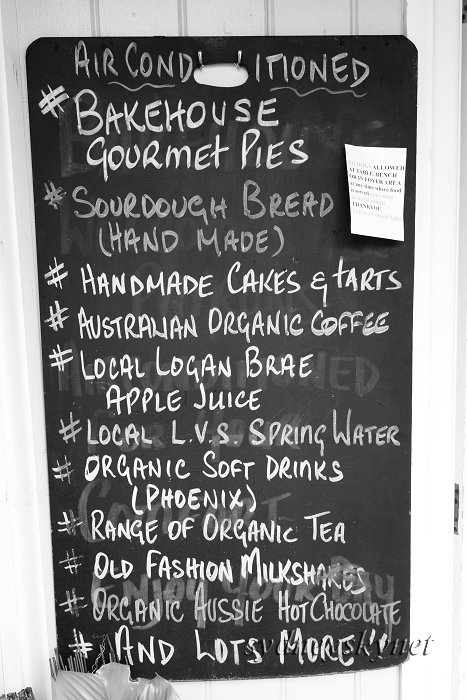 AIR CONDITIONED
# BAKEHOUSE
GOURMET PIES
# SOURDOUGH BREAD
(HAND MADE)
# HANDMADE CAKES & TARTS
# AUSTRALIAN ORGANIC COFFEE
# LOCAL LOGAN BRAE
APPLE JUICE
# LOCAL L.V.S. SPRING WATER
# ORGANIC SOFT DRINKS
(PHOENIX)
# RANGE OF ORGANIC TEA
# OLD FASHION MILKSHAKES
# ORGANIC AUSSIE HOT CHOCOLATE
# AND LOTS MORE!!
ALLOWED
AT TABLE, BENCH
OR IN FOYER AREA
at any time where food
is served
THANKYOU
sydney skynet